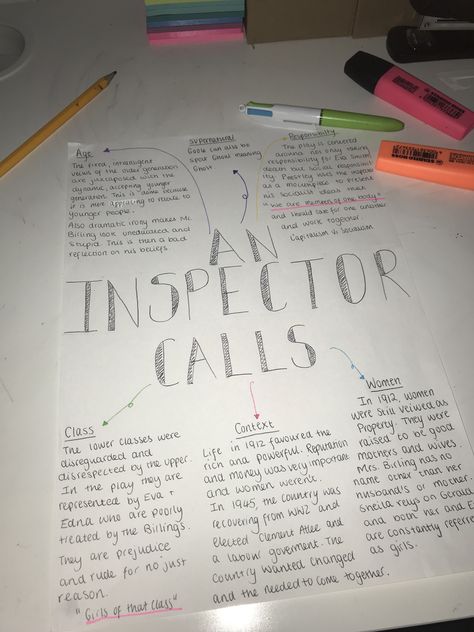 Age
The fixed, intransigent
views of the older generation
are juxtaposed with the
dynamic, accepting younger
generation. This is done because
it is more appealing to relate to
younger people.
Also dramatic irony makes Mr.
Birling look uneducated and
stupid. This is then a bad
reflection on his beliefs
Supernatural
Goole can also be
spelt Ghoul meaning
Ghost
Responsibility
The play is centered
around not only taking
responsibility for Eva Smith's
death but social responsibil
ity. Priestley uses the inspector
as a mouthpiece to present
his socialist ideas that
"we are members of one body"
and should care for one another
and work together
Capitalism v. Socialism
AN
INSPECTOR
CALLS
Class
The lower classes were
disreguarded and
disrespected by the upper.
In the play they are
represented by Eva +
Edna who are poorly
treated by the Birlings.
They are prejudice
and rude for no just
reason.
"Girls of that class"
Context
Life in 1912 favoured the
rich and powerful. Reputation
and money was very important
and women weren't.
In 1945, the country was
recovering from WW2 and
elected Clement Atlee and
a labour goverment. The
country wanted changed
and the needed to come together.
Women
In 1912, women
were still veiwed as
Property. They were
raised to be good
mothers and wives.
Mrs. Birling has no
name other than her
husband's or mother.
Sheila relys on Gerald
and both her and E
are constantly referre
as girls.